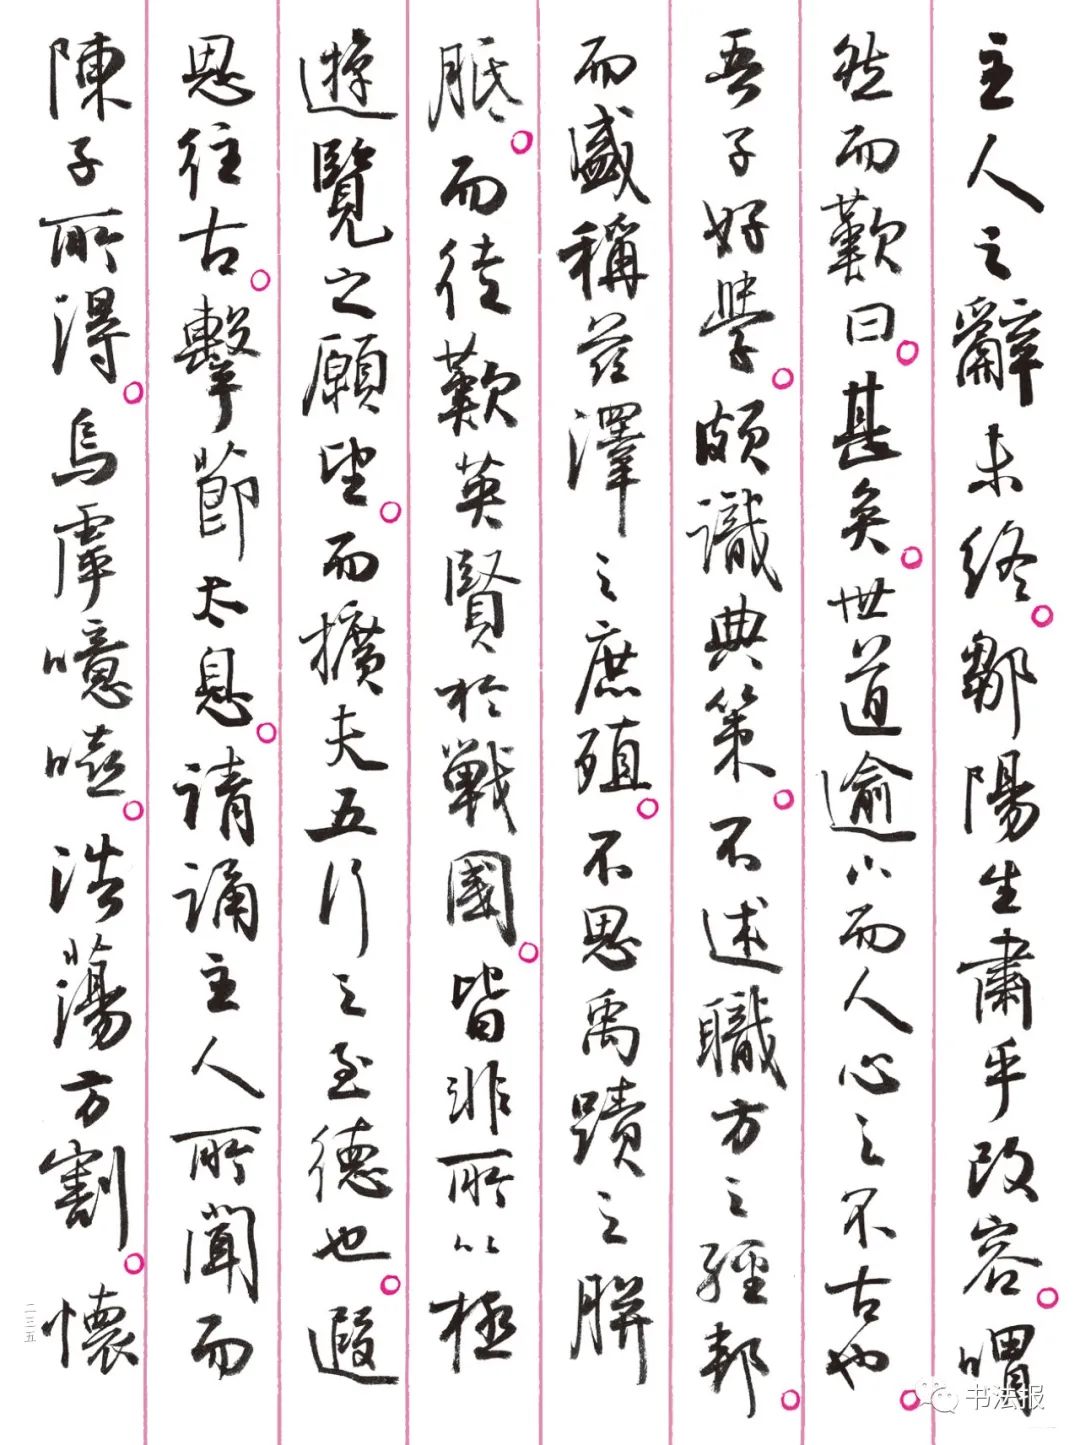 主人之辭未終。鄒陽生肅乎改容。喟
然而歎曰。甚矣。世道逾下而人心之不古也。
吾子好學。頗識典策。不述職方之經邦。
而盛稱茲澤之庶殖。不思禹蹟之胼
胝。而徒歎英賢於戰國。皆非所以極
遊覽之願望。而擴夫五行之至德也。遐
思往古。擊節太息。請誦主人所聞而
陳子所得。烏虖噫嘻。浩蕩方割。懷
二三五
书法报